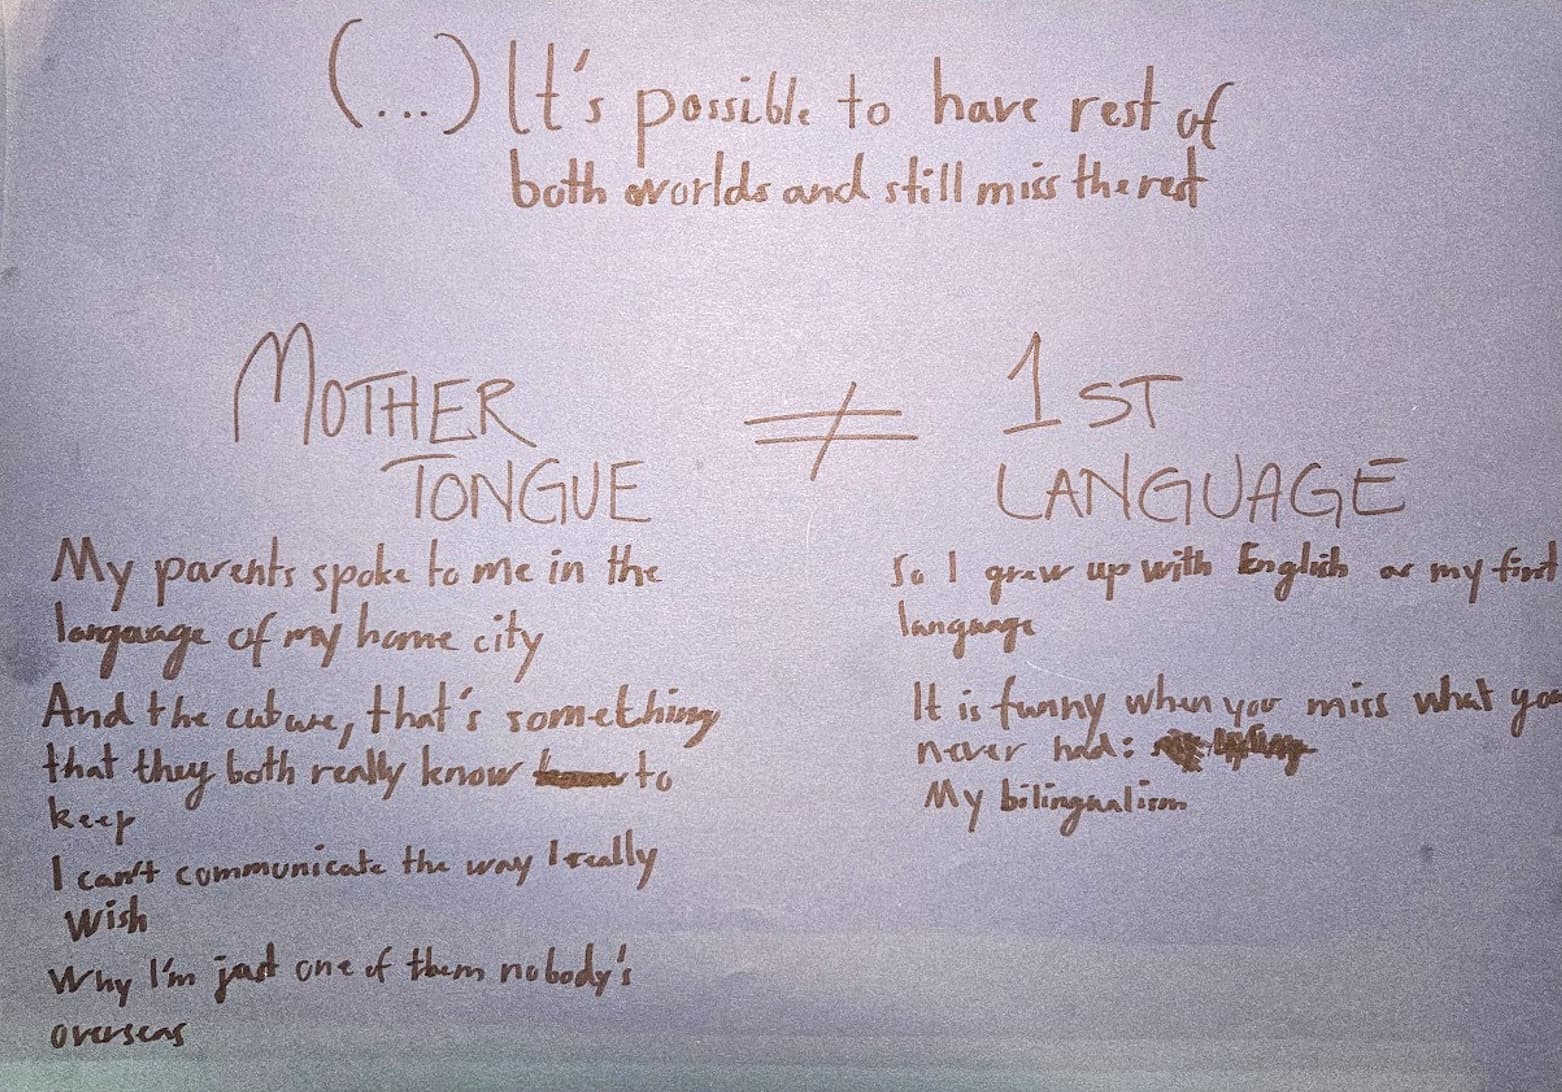 (...) It's possible to have rest of
both worlds and still miss the rest
MOTHER
TONGUE
≠
1ST
LANGUAGE
My parents spoke to me in the
language of my home city
And the cuture, that's something
that they both really know to
keep
I can't communicate the way I really
wish
Why I'm just one of them nobody's
overseas
So I grew up with English as my first
language
It is funny when you miss what you
never had:
My bilingualism